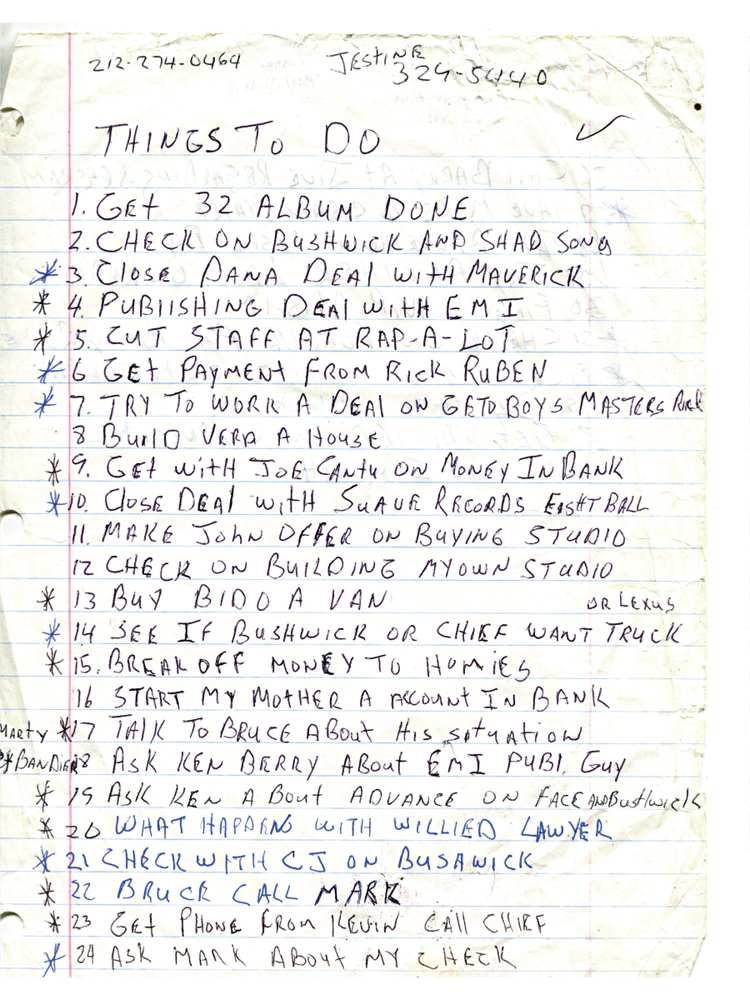 212-274-0464 JESTINE
324-5440
THINGS TO DO
1. GEt 32 ALBUM DONE
2. CHECK ON BUSHWICK AND SHAD SONG
* 3. Close DANA DEAl with MAVERICK
* 4. PUBlISHING DEAl with EMI
* 5. CUT STAFF AT RAP-A-LOT
* 6 GEt PAYMENt FROM RICK RUBEN
* 7. TRY TO WORK A DEAl ON GETO BOYS MASTERS
8 BuilD VERA A HousE
* 9. GEt with JOE CANtu ON MONEY IN BANK
* 10. Close DEAl with SUAVE RECORDS EIGHtBALL
11. MAKE JohN OFFER ON BUYING STUDIO
12 CHECK ON BUILDING MY OWN STUDIO
* 13 BUY BIDO A VAN OR LEXUS
* 14 SEE IF BUSHWICK OR CHIEF WANT TRUCK
* 15. BREAK OFF MONEY TO HOMiES
16 START MY MOTHER A ACCOUNt IN BANK
MARty * 17 TAlK TO BRUCE ABout His situation
* BANDIER 18 ASK KEN BERRY ABout EMI PUBl. Guy
* 19 ASK KEN A Bout ADVANCE ON FACE AND BusHwick
* 20 WHAT HAPPENS WITH WILLIED LAWYER
* 21 CHECK WITH CJ ON BUSHWICK
* 22 BRUCE CALL MARK
* 23 GEt PHONE FROM KEVIN CAll CHIEF
* 24 ASK MARK ABout MY CHECK